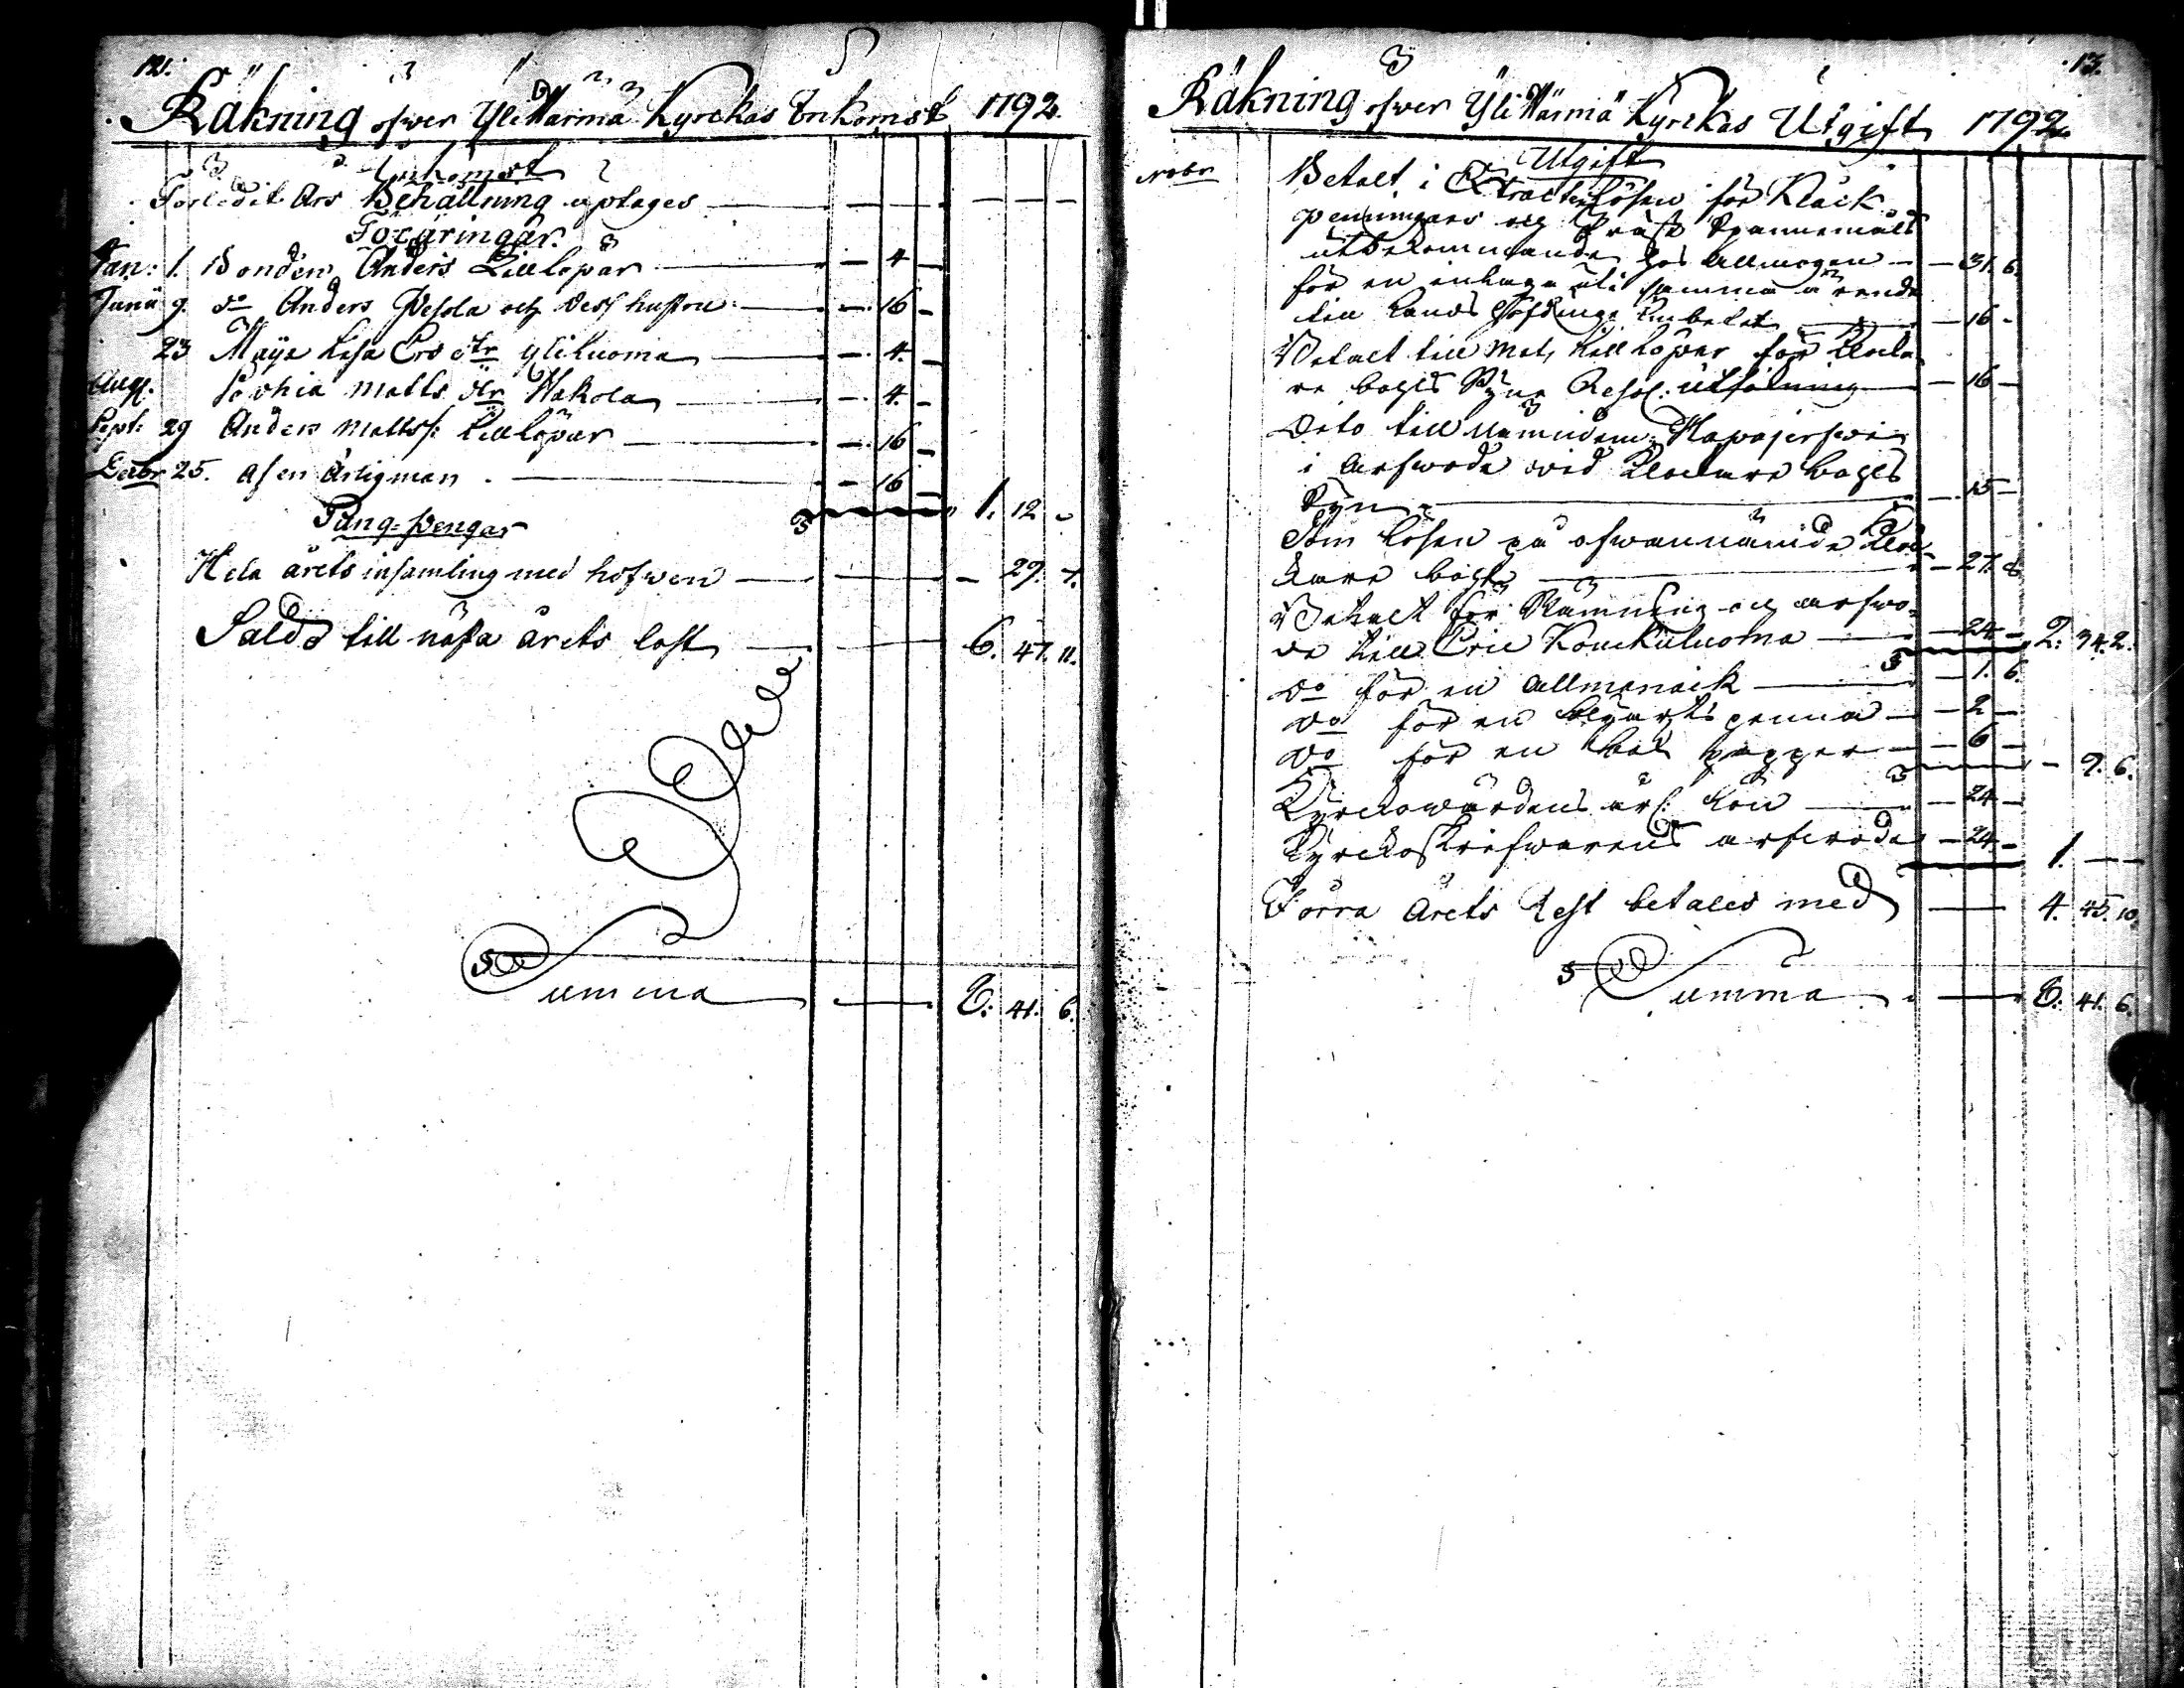 12.
Räkning ofwer Yli Härmä Kyrckas Inkomst 1792.
Inkomst
Förledit Års Behållning uptages — — — — — —
Föräringar.
Jan: 1. Bonden Anders Lillköpar — — 4 —
Junii 9. do Anders Pesola och dess hustru — — 16 —
23 Maja Lisa Ers dtr Yliluoma — — 4. —
Aug. Sophia Matts dtr Hakola — — 4. —
Sept: 29 Anders Matts: Lillköpar — — 16 —
Decbr 25. af en ärligman — — 16 — 1. 12 -
Pung-Pengar
Hela årets insamling med hofwen — — — 29. 7.
Saldo till näste årets last — — 6. 47. 11.
Summa — — 8: 41. 6.
13.
Räkning ofwer Yli Härmä Kyrckas Utgift 1792.
Utgift
Novbr Betalt i Extracts lösen för Klåck
penningars och Präst Spannemåls
utbekommande hos Allmogen — — 31. 6.
för en inlaga uti samma ärende
till Lands Höfdinge Embetet — — 16 -
Betalt till Mats Lillköpar för Klocka
re bohls Syne Resol: utfärning — — 16 —
Dito till Nämndem: Hapajerfwi
i Arfwode wid Klockare bohls
Syn — — 15 —
Som lösen på ofwannämde Kloc-
kare bohl — — 27. 8.
Betalt för Stämning och arfwo-
de till Eric Kouckuluoma — — 24 — 2: 34. 2.
do för en Allmanack — — 1. 6.
do för en Blyärts penna — — 2 —
do för en bok papper — — 6 — - 9. 6.
Kyrckowärdens årl: lön — — 24 —
Kyrckoskrifwarens arfwode — 24 — 1. — —
Förra Årets Rest betales med — 4. 45. 10.
Summa — — 8: 41. 6.